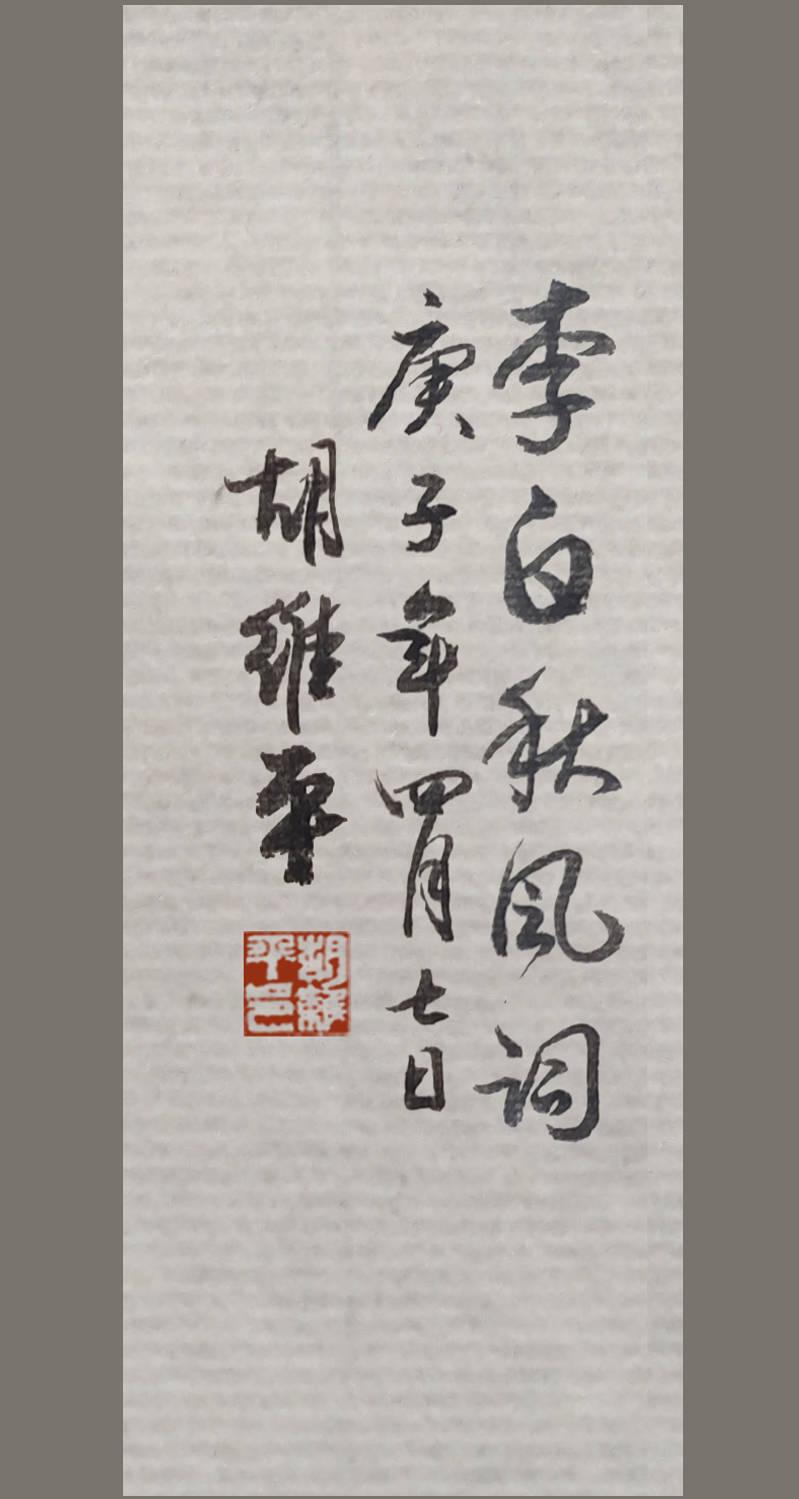 李白秋风词
庚子年四月七日
胡维平
胡维平印